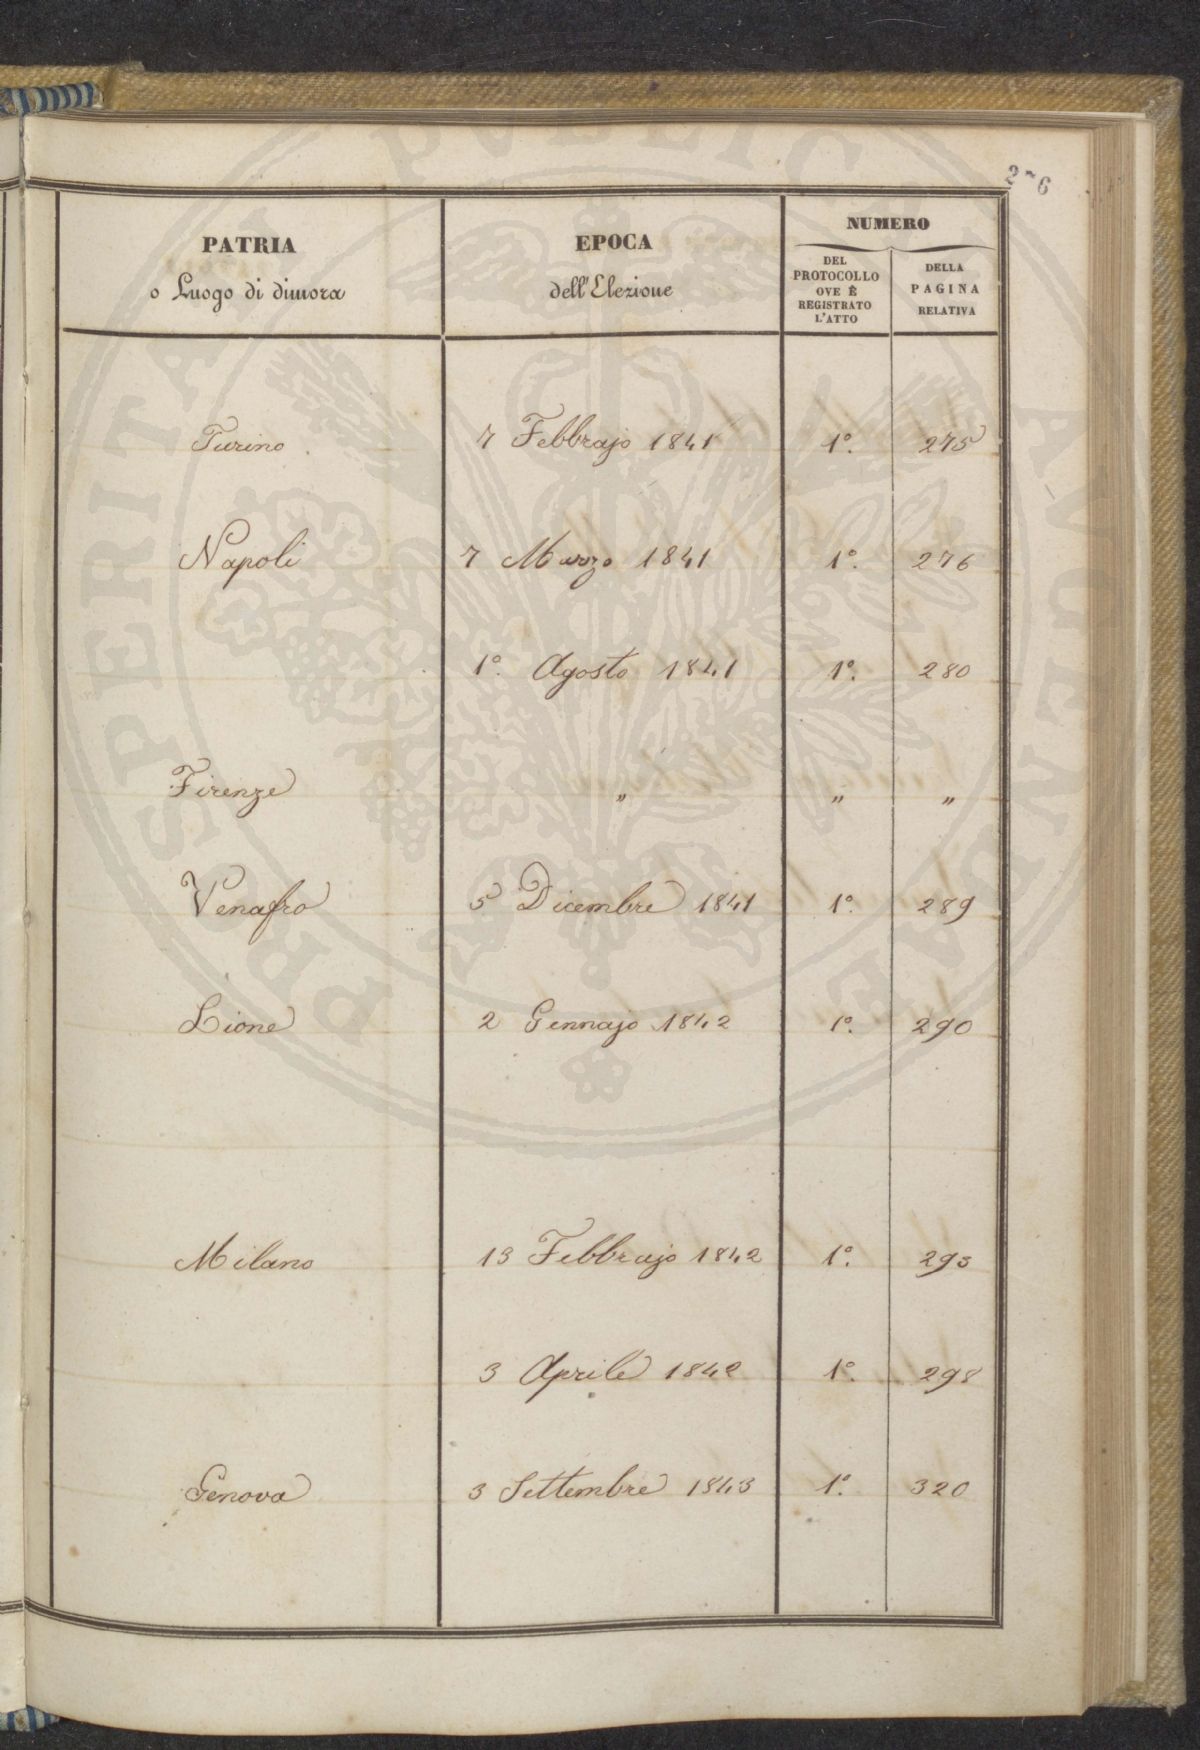 2~6
PATRIA
o Luogo di dimora
EPOCA
dell'Elezione
NUMERO
DEL
PROTOCOLLO
OVE È
REGISTRATO
L'ATTO
DELLA
PAGINA
RELATIVA
Turino 7 Febbrajo 1841 1º. 275
Napoli 7 Marzo 1841 1º. 276
1º. Agosto 1841 1º. 280
Firenze " " "
Venafro 5 Dicembre 1841 1º. 289
Lione 2 Gennajo 1842 1º. 290
Milano 13 Febbrajo 1842 1º. 293
3 Aprile 1842 1º. 298
Genova 3 Settembre 1843 1º. 320
PROSPERITATI PUBLICAE AUGENDAE